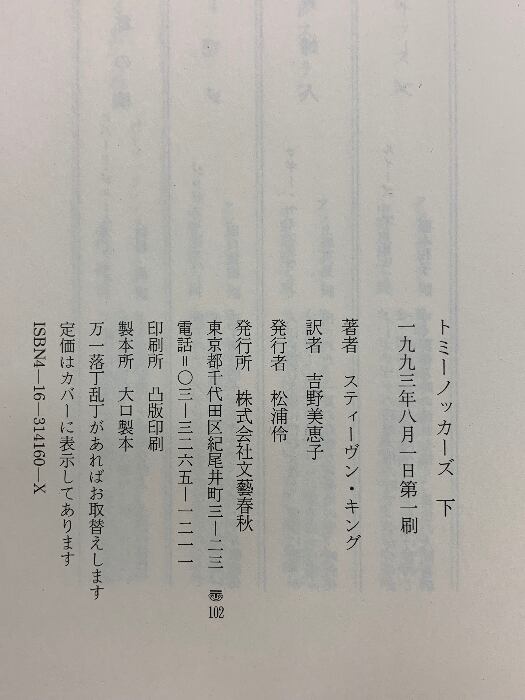 トミーノッカーズ　下
一九九三年八月一日第一刷
著者　スティーヴン・キング
訳者　吉野美恵子
発行者　松浦伶
発行所　株式会社文藝春秋
東京都千代田区紀尾井町三―二三　〠102
電話＝〇三―三二六五―一二一一
印刷所　凸版印刷
製本所　大口製本
万一落丁乱丁があればお取替えします
定価はカバーに表示してあります
ISBN4―16―314160―X